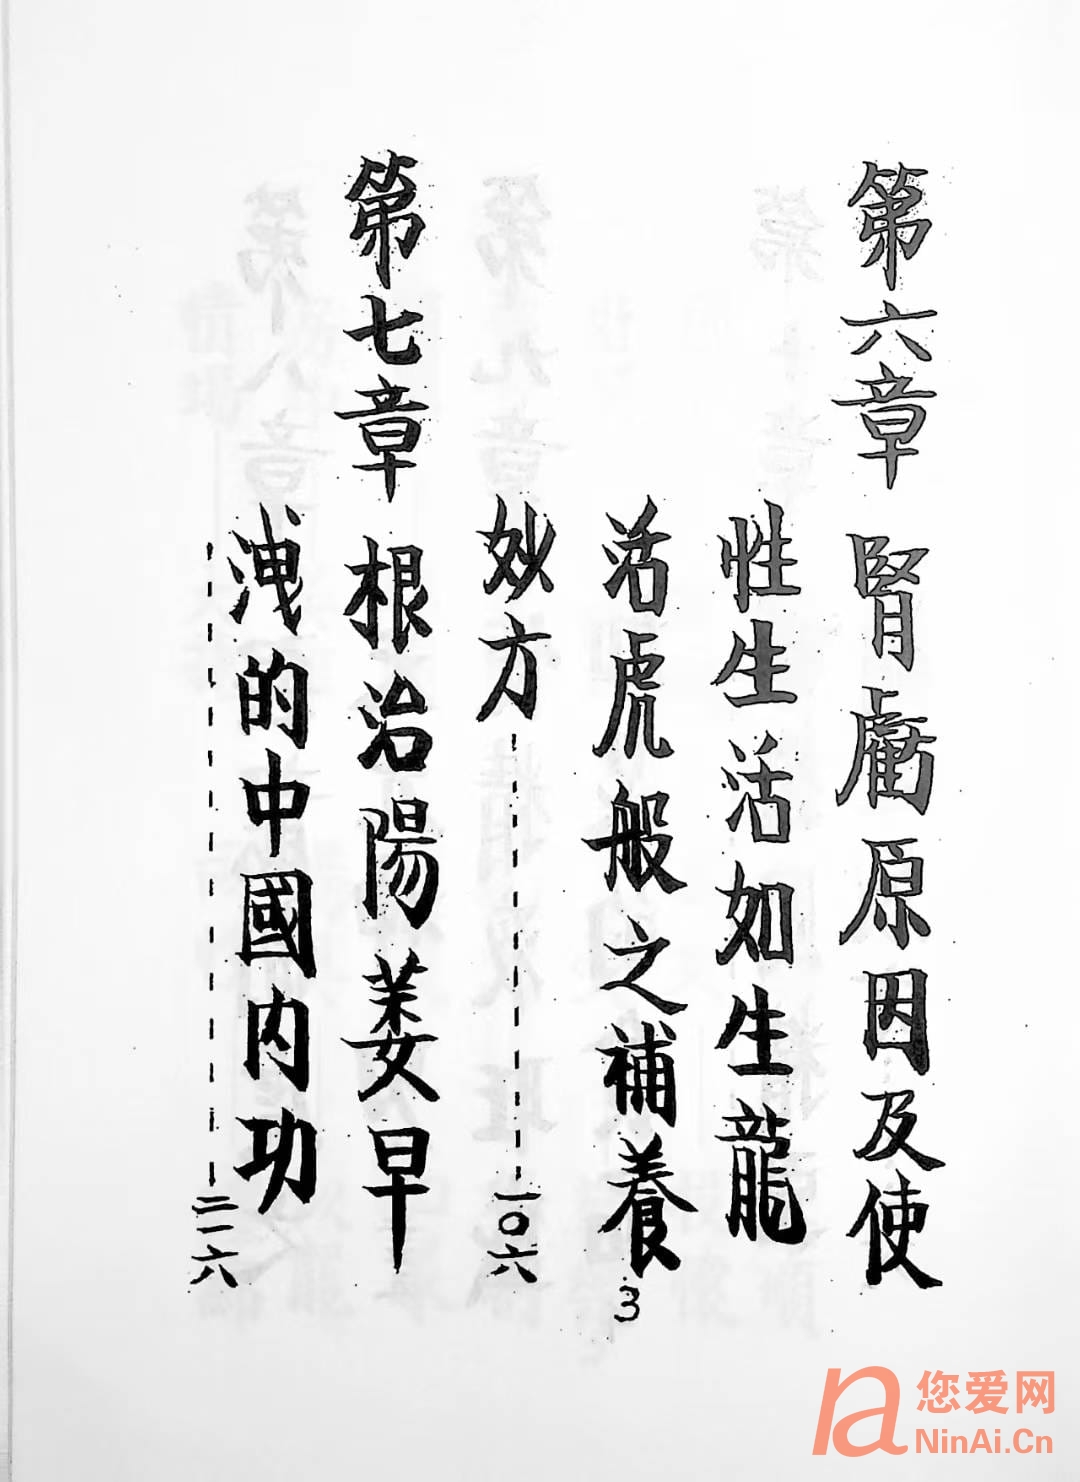 第六章 腎虧原因及使
性生活如生龍
活虎般之補養
妙方------一〇六
第七章 根治陽萎早
洩的中國内功
------二一六
3
您爱网
NinAi.Cn